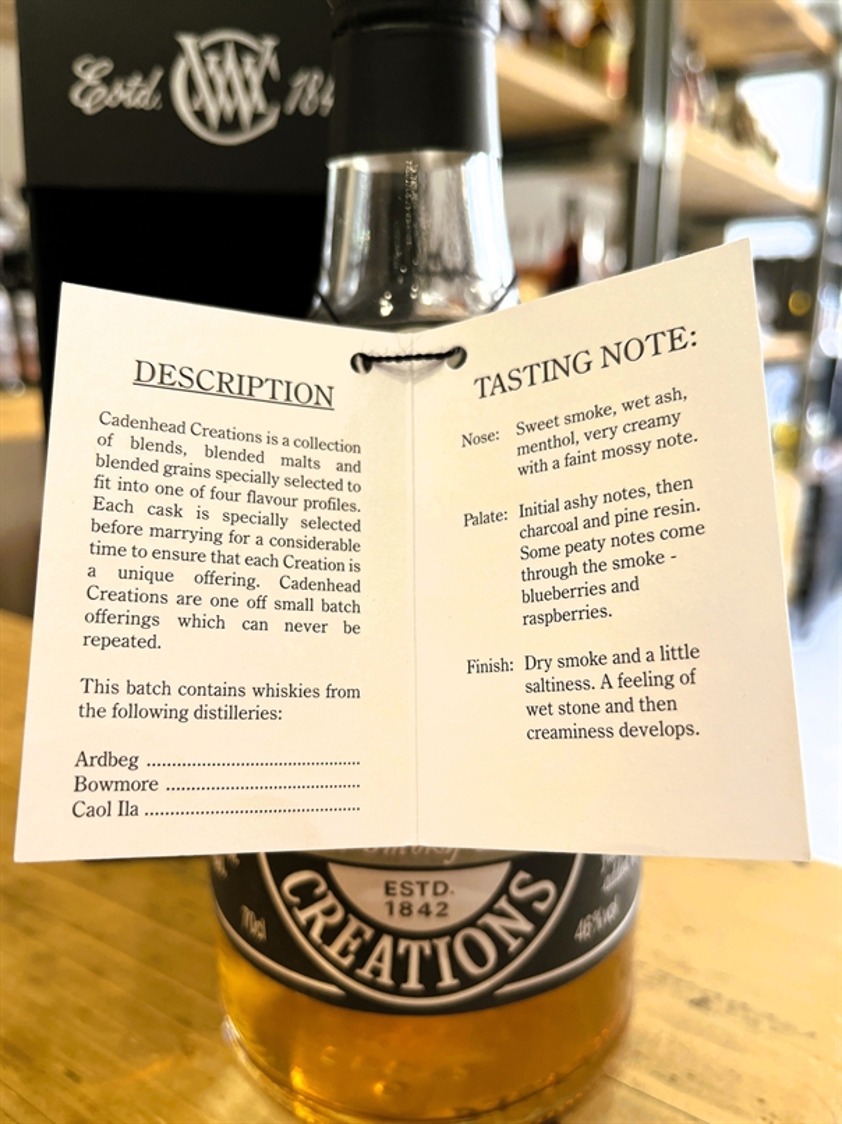 Estd. WC 184
DESCRIPTION
Cadenhead Creations is a collection
of blends, blended malts and
blended grains specially selected to
fit into one of four flavour profiles.
Each cask is specially selected
before marrying for a considerable
time to ensure that each Creation is
a unique offering. Cadenhead
Creations are one off small batch
offerings which can never be
repeated.
This batch contains whiskies from
the following distilleries:
Ardbeg ..................................................
Bowmore .............................................
Caol Ila ..................................................
TASTING NOTE:
Nose: Sweet smoke, wet ash,
menthol, very creamy
with a faint mossy note.
Palate: Initial ashy notes, then
charcoal and pine resin.
Some peaty notes come
through the smoke -
blueberries and
raspberries.
Finish: Dry smoke and a little
saltiness. A feeling of
wet stone and then
creaminess develops.
ESTD.
1842
CREATIONS
70cl
46%vol